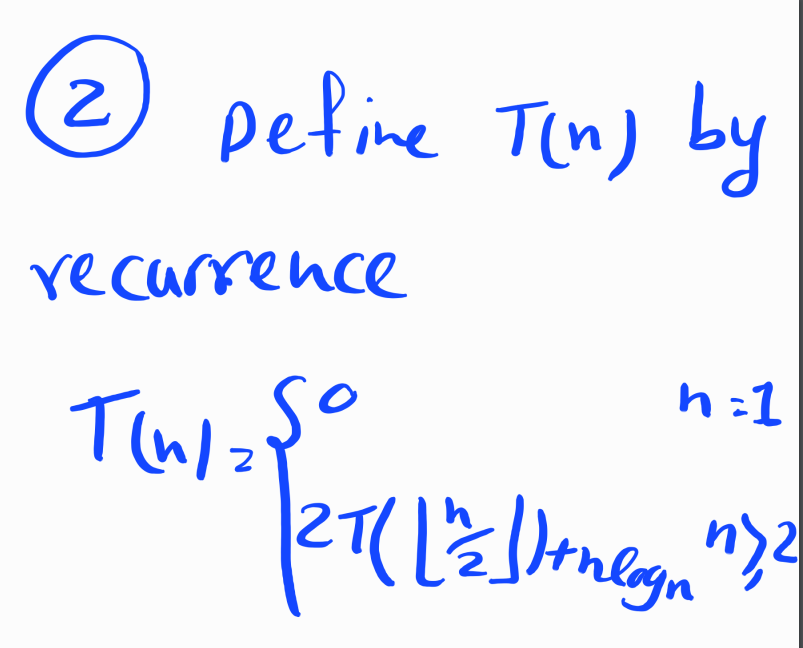 ② Define T(n) by
recurrence
T(n) = { 0 n=1
2T(⌊n/2⌋)+nlogn n≥2